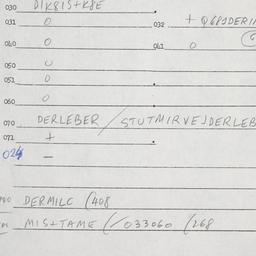 030 D1K8IS+K8E
031 0 032 + Q681DERI
040 0 041 0
050 0
051 0
060 0
070 DERLEBER / STUTMIRVEJDERLEB
072 +
024 —
DERMILC (408
MIS+TAME (/033060 (268